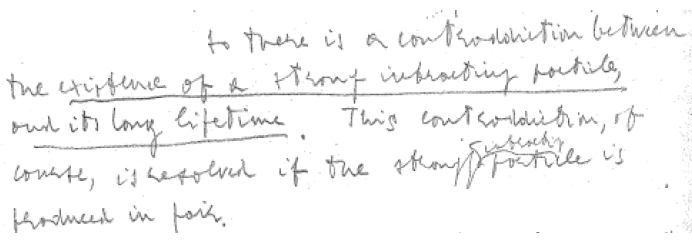 So there is a contradiction between
the existence of a strong interacting particle,
and its long lifetime. This contradiction, of
course, is resolved if the strong interacting particle is
produced in pair.